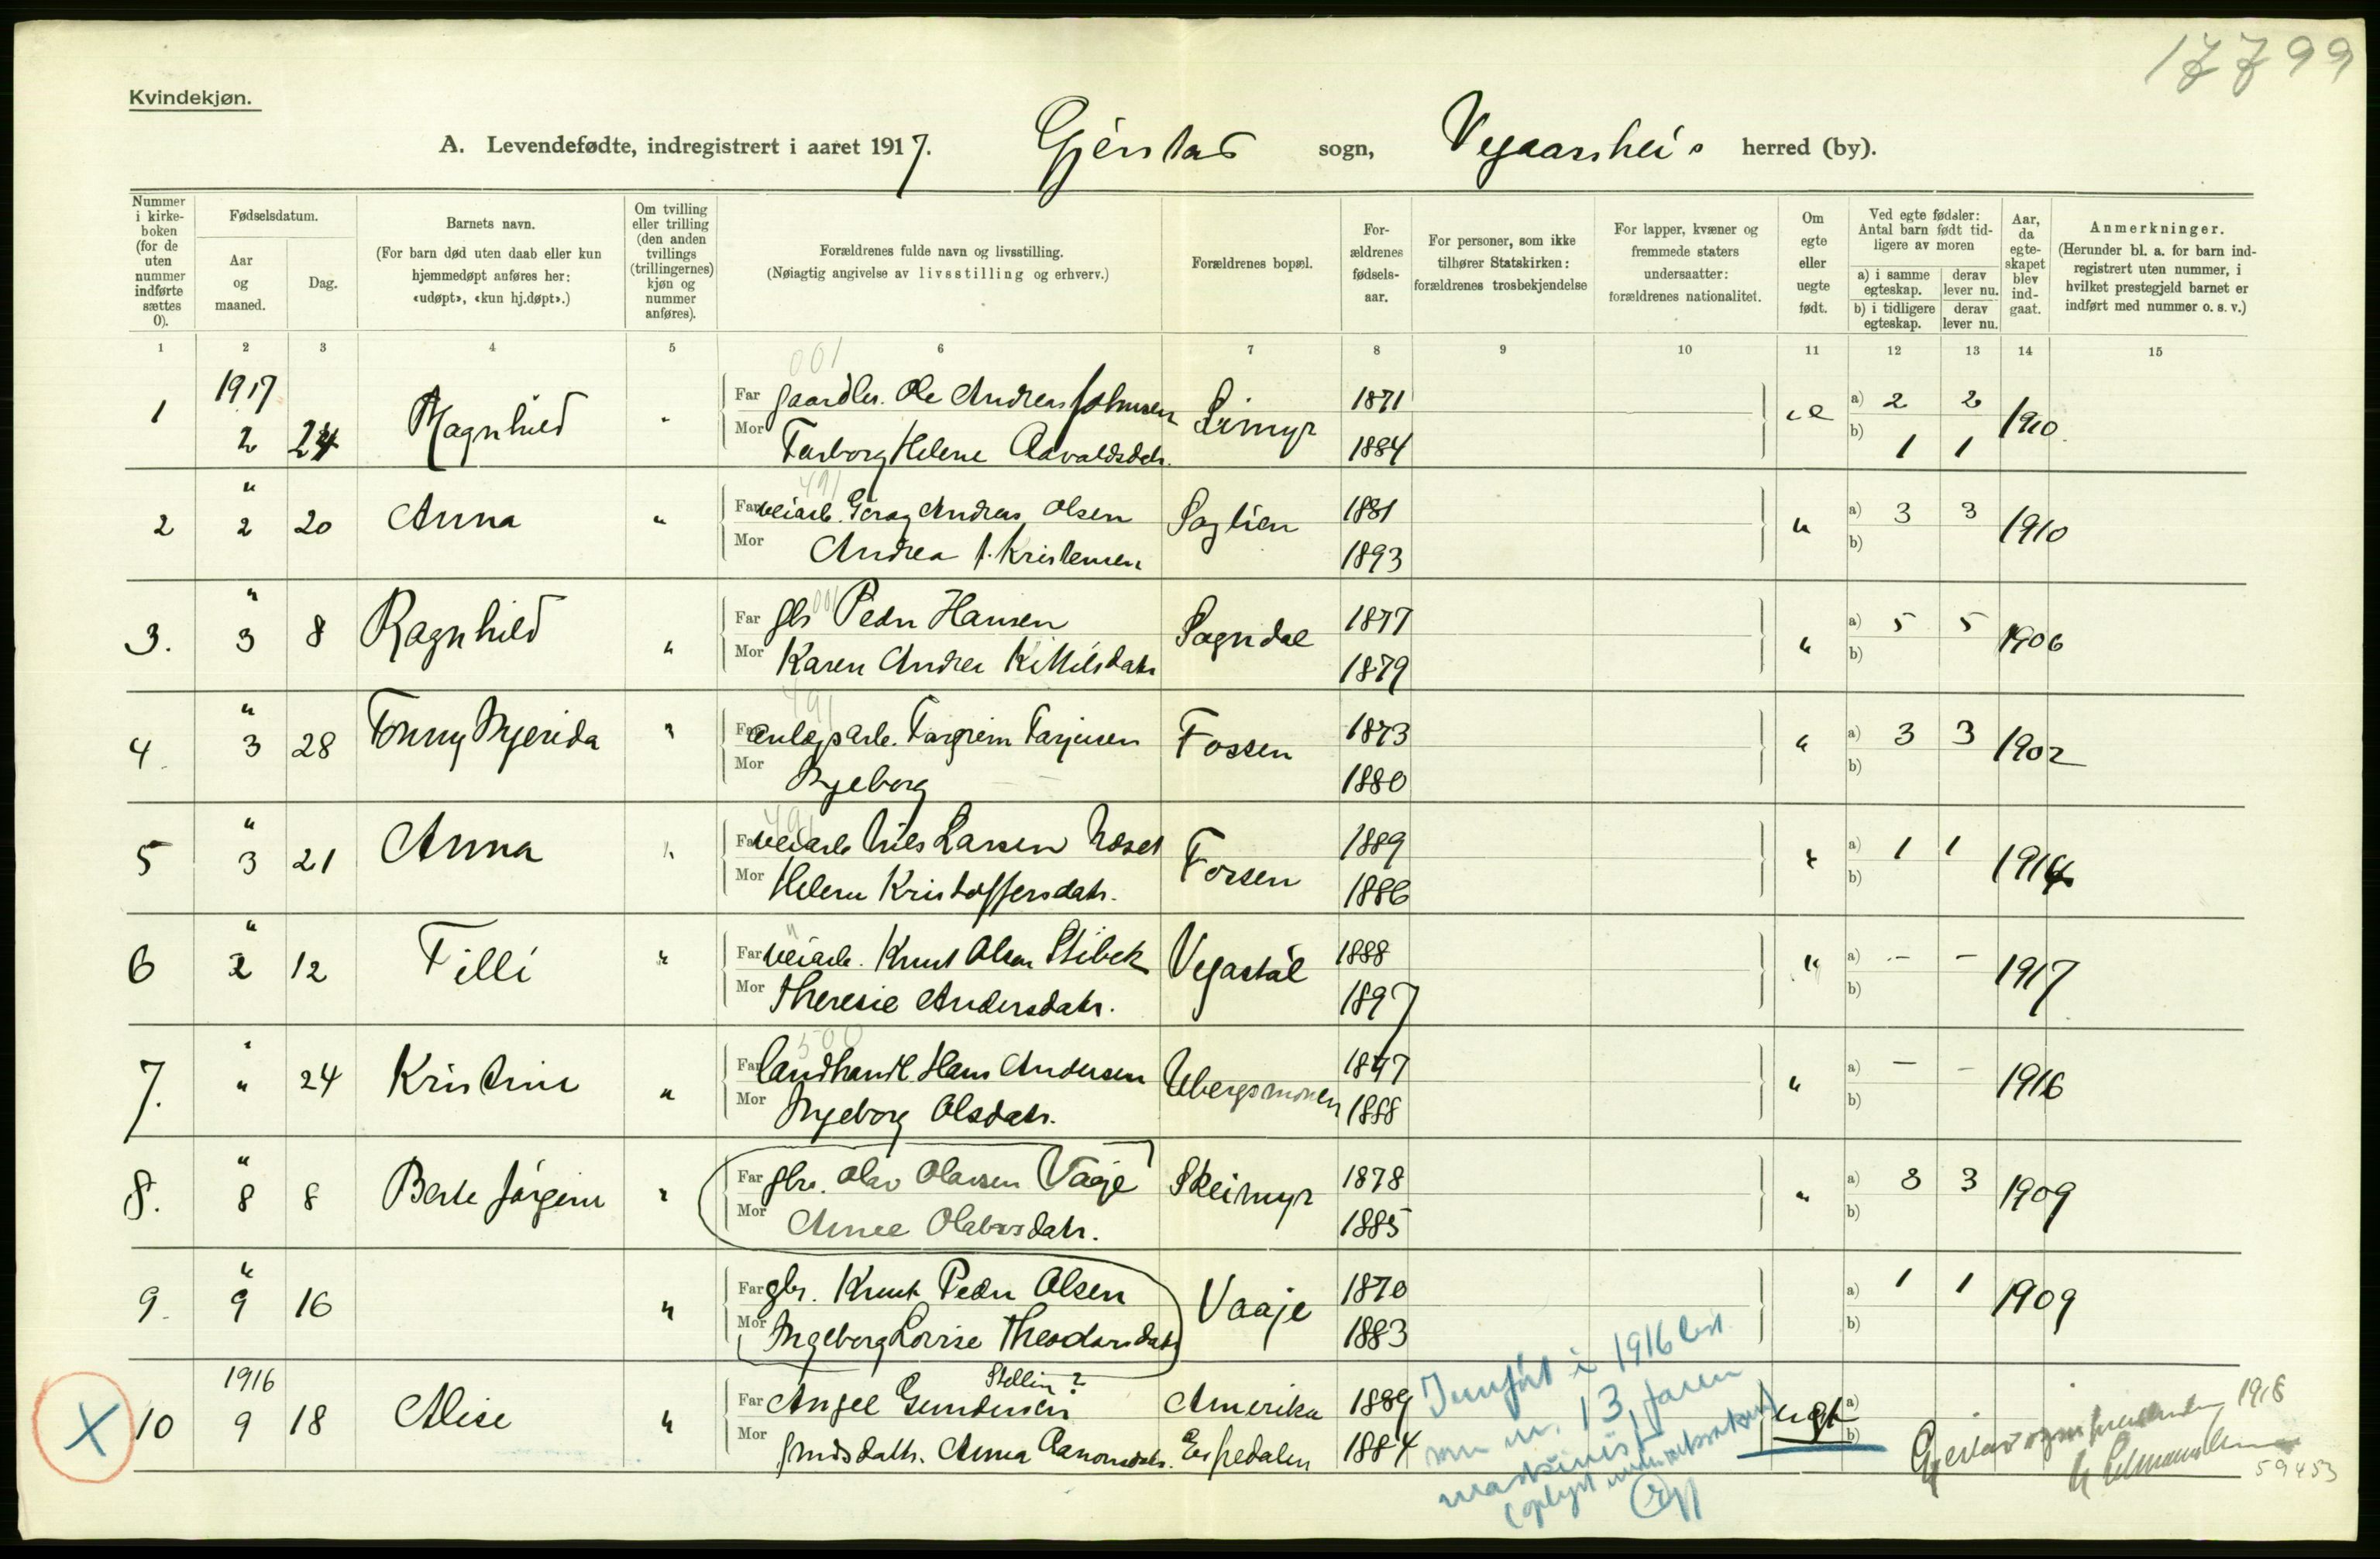 17799
Kvindekjøn.
A. Levendefødte, indregistrert i aaret 1917. Gjerstad sogn, Vegaarshei's herred (by).
Nummer i kirke-boken (for de uten nummer indførte sættes 0).
Fødselsdatum.
Aar og maaned.
Dag.
Barnets navn.
(For barn død uten daab eller kun hjemmedøpt anføres her: «udøpt», «kun hj.døpt».)
Om tvilling eller trilling (den anden tvillings (trillingernes) kjøn og nummer anføres).
Forældrenes fulde navn og livsstilling.
(Nøiagtig angivelse av livsstilling og erhverv.)
Forældrenes bopæl.
For-ældrenes fødsels-aar.
For personer, som ikke tilhører Statskirken: forældrenes trosbekjendelse
For lapper, kvæner og fremmede staters undersaatter: forældrenes nationalitet.
Om egte eller uegte født.
Ved egte fødsler: Antal barn født tid-ligere av moren
a) i samme egteskap. derav lever nu.
b) i tidligere egteskap. derav lever nu.
Aar, da egte-skapet blev ind-gaat.
Anmerkninger.
(Herunder bl. a. for barn ind-registrert uten nummer, i hvilket prestegjeld barnet er indført med nummer o. s. v.)
1 2 3 4 5 6 7 8 9 10 11 12 13 14 15
001
1 1917 2 24 Ragnhild " Far gaardbr. Ole Andreas Johnsen Limyr 1871 a) 2 2 1910
Mor Tarborg Helene Aavaldsdatr. 1884 b) 1 1
491
2 " 2 20 Anna " Far veiarb. Georg Andreas Olsen Saglien 1881 " a) 3 3 1910
Mor Andrea f. Kristensen 1893 b)
001
3. " 3 8 Ragnhild " Far gbr Peder Hansen Sagndal 1877 " a) 5 5 1906
Mor Karen Andrea Kittilsdatr 1879 b)
491
4. " 3 28 Tonny Ingerida " Far anlægsarb. Targrim Tarjusen Fossen 1873 " a) 3 3 1902
Mor Ingeborg — — 1880 b)
491
5 " 3 21 Anna " Far veiarb Nils Larsen Fossen 1889 " a) 1 1 1914
Mor Helene Kristoffersdatr. 1886 b)
"
6 " 2 12 Tilli " Far veiarb. Knut Olsen Stibek Vegastøl 1888 " a) - - 1917
Mor Theresie Andersdatr. 1897 b)
500
7. " " 24 Kristine " Far landhandl Hans Andersen Ubergsmoen 1847 " a) - - 1916
Mor Ingeborg Olsdatr. 1888 b)
8. " 8 8 Berte Jørgine " Far gbr. Olav Olavsen Vaaje Skeimyr 1878 " a) 3 3 1909
Mor Anne Olavsdatr. 1885 b)
9. " 9 16 " Far gbr. Knut Peder Olsen Vaaje 1870 a) 1 1 1909
Mor Ingeborg Lovise Theodorsdatr 1883 b)
Stellin?
X 10 1916 9 18 Alise " Far Angel Gundersen Amerika 1889 ugt a)
Mor Anna Aanonsdatr. Espedalen 1884 b)
Innført i 1916 list
som nr. 13, faren
maskinist
(oplyst
1918
59453